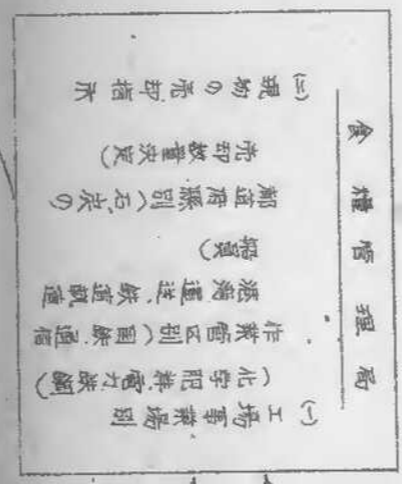 食糧管理局
(一)工場事業場別
(化学肥料、電力、鉄鋼)
作業管区別(国鉄、通信
港湾運送、鉄道軌道
船員)
都道府縣別(石炭の
売却数量決定)
(二)現物の売却指示